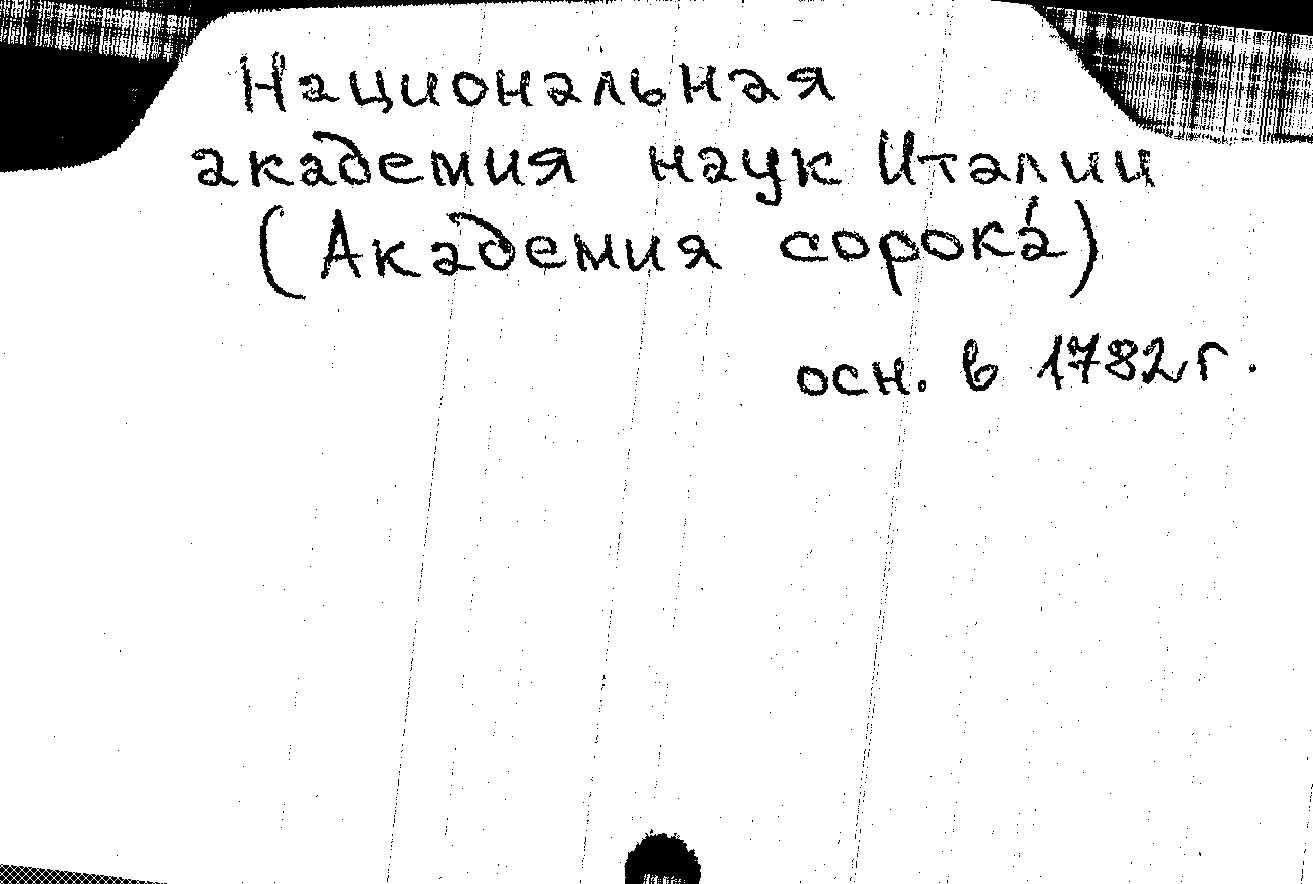 Национальная
академия наук Италии
(Академия сорока́)
осн. в 1782 г.